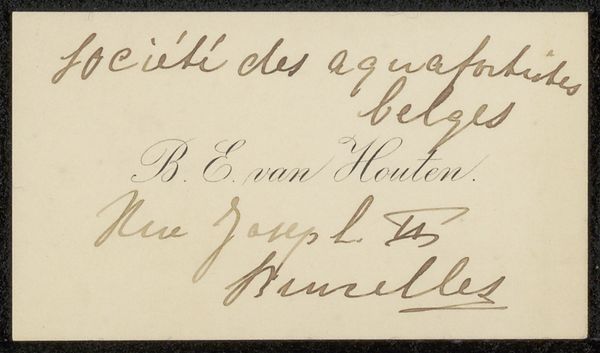 Société des aquafortistes
belges
B. E. van Houten.
Rue Joseph II
Bruxelles